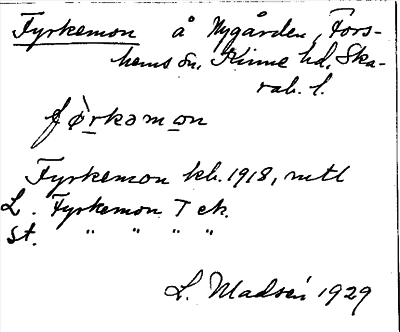 Fyrkemon å Nygården, Fors-
hems sn, Kinne hd, Ska-
rab. l.
fø̀rkəmon
Fyrkemon kb. 1918, mtl
L. Fyrkemon T ek.
St. " " " "
L. Madsén 1929